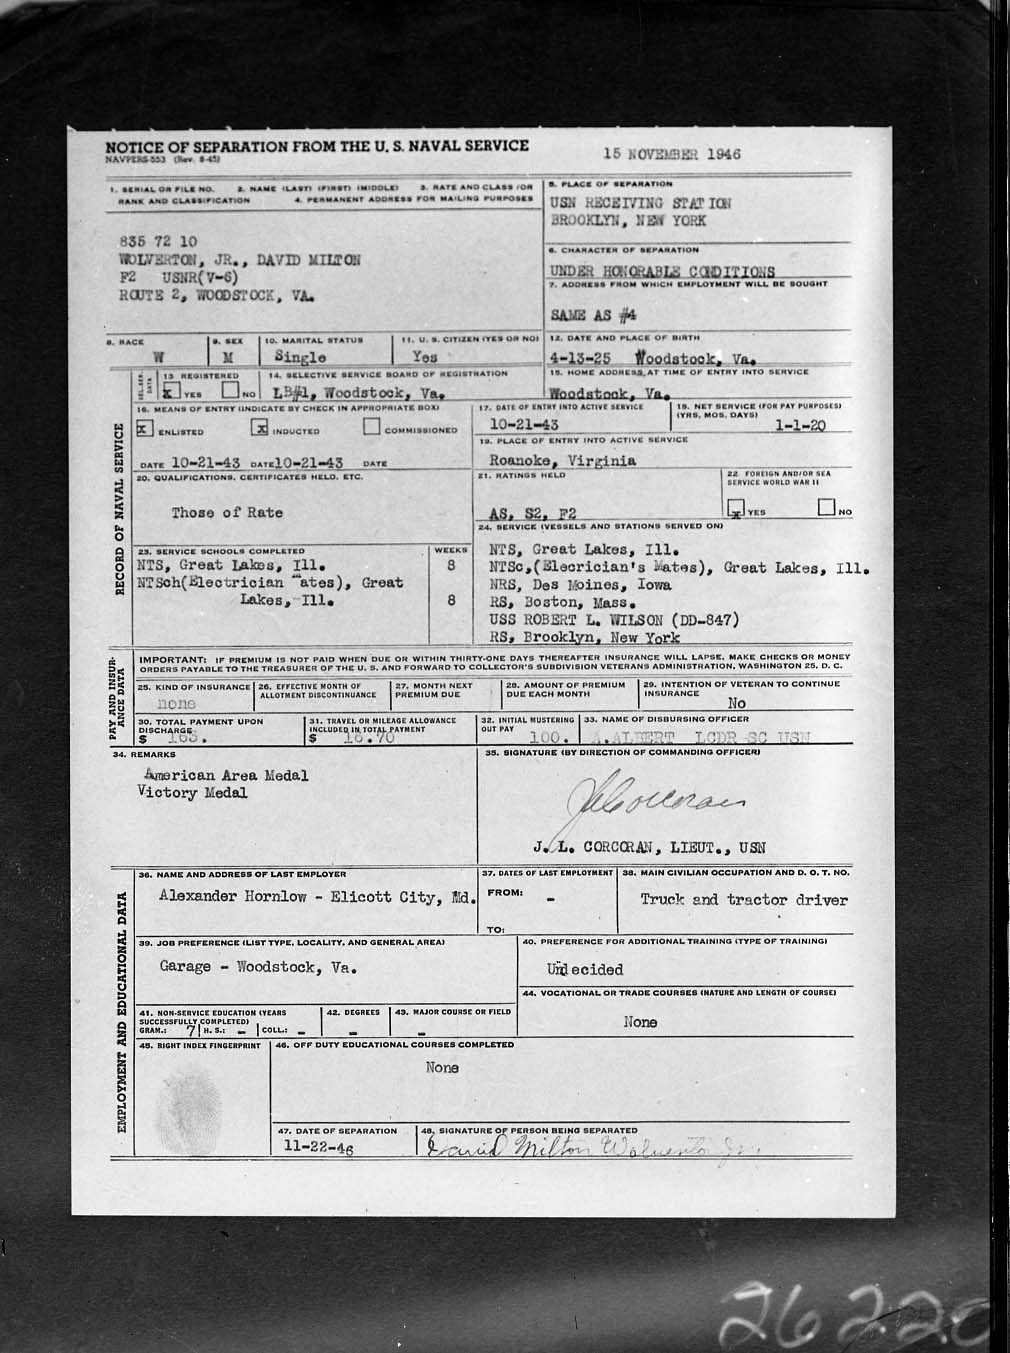 NOTICE OF SEPARATION FROM THE U. S. NAVAL SERVICE
NAVPERS-553 (Rev. 8-45)
15 NOVEMBER 1946
1. SERIAL OR FILE NO. 2. NAME (LAST) (FIRST) (MIDDLE) 3. RATE AND CLASS (OR
RANK AND CLASSIFICATION 4. PERMANENT ADDRESS FOR MAILING PURPOSES
835 72 10
WOLVERTON, JR., DAVID MILTON
F2 USNR(V-6)
ROUTE 2, WOODSTOCK, VA.
5. PLACE OF SEPARATION
USN RECEIVING STATION
BROOKLYN, NEW YORK
6. CHARACTER OF SEPARATION
UNDER HONORABLE CONDITIONS
7. ADDRESS FROM WHICH EMPLOYMENT WILL BE SOUGHT
SAME AS #4
8. RACE
W
9. SEX
M
10. MARITAL STATUS
Single
11. U. S. CITIZEN (YES OR NO)
Yes
12. DATE AND PLACE OF BIRTH
4-13-25 Woodstock, Va.
SEL. SER. DATA
13 REGISTERED
X YES NO
14. SELECTIVE SERVICE BOARD OF REGISTRATION
LB#1, Woodstock, Va.
15. HOME ADDRESS AT TIME OF ENTRY INTO SERVICE
Woodstock, Va.
RECORD OF NAVAL SERVICE
16. MEANS OF ENTRY (INDICATE BY CHECK IN APPROPRIATE BOX)
X ENLISTED X INDUCTED COMMISSIONED
DATE 10-21-43 DATE 10-21-43 DATE
17. DATE OF ENTRY INTO ACTIVE SERVICE
10-21-43
18. NET SERVICE (FOR PAY PURPOSES)
(YRS, MOS, DAYS)
1-1-20
19. PLACE OF ENTRY INTO ACTIVE SERVICE
Roanoke, Virginia
20. QUALIFICATIONS, CERTIFICATES HELD, ETC.
Those of Rate
21. RATINGS HELD
AS, S2, F2
22 FOREIGN AND/OR SEA
SERVICE WORLD WAR II
X YES NO
23. SERVICE SCHOOLS COMPLETED WEEKS
NTS, Great Lakes, Ill. 8
NTSch(Electrician Mates), Great
Lakes, Ill. 8
24. SERVICE (VESSELS AND STATIONS SERVED ON)
NTS, Great Lakes, Ill.
NTSc,(Elecrician's Mates), Great Lakes, Ill.
NRS, Des Moines, Iowa
RS, Boston, Mass.
USS ROBERT L. WILSON (DD-847)
RS, Brooklyn, New York
PAY AND INSUR-
ANCE DATA
IMPORTANT: IF PREMIUM IS NOT PAID WHEN DUE OR WITHIN THIRTY-ONE DAYS THEREAFTER INSURANCE WILL LAPSE. MAKE CHECKS OR MONEY
ORDERS PAYABLE TO THE TREASURER OF THE U. S. AND FORWARD TO COLLECTOR'S SUBDIVISION VETERANS ADMINISTRATION, WASHINGTON 25, D. C.
25. KIND OF INSURANCE
none
26. EFFECTIVE MONTH OF
ALLOTMENT DISCONTINUANCE
27. MONTH NEXT
PREMIUM DUE
28. AMOUNT OF PREMIUM
DUE EACH MONTH
29. INTENTION OF VETERAN TO CONTINUE
INSURANCE
No
30. TOTAL PAYMENT UPON
DISCHARGE
$ 163.
31. TRAVEL OR MILEAGE ALLOWANCE
INCLUDED IN TOTAL PAYMENT
$ 16.70
32. INITIAL MUSTERING
OUT PAY
100.
33. NAME OF DISBURSING OFFICER
A.ALBERT LCDR SC USN
34. REMARKS
American Area Medal
Victory Medal
35. SIGNATURE (BY DIRECTION OF COMMANDING OFFICER)
J L Corcoran
J. L. CORCORAN, LIEUT., USN
EMPLOYMENT AND EDUCATIONAL DATA
36. NAME AND ADDRESS OF LAST EMPLOYER
Alexander Hornlow - Elicott City, Md.
37. DATES OF LAST EMPLOYMENT
FROM: -
TO:
38. MAIN CIVILIAN OCCUPATION AND D. O. T. NO.
Truck and tractor driver
39. JOB PREFERENCE (LIST TYPE, LOCALITY, AND GENERAL AREA)
Garage - Woodstock, Va.
40. PREFERENCE FOR ADDITIONAL TRAINING (TYPE OF TRAINING)
Undecided
41. NON-SERVICE EDUCATION (YEARS
SUCCESSFULLY COMPLETED)
GRAM.: 7 H. S.: - COLL.: -
42. DEGREES
-
43. MAJOR COURSE OR FIELD
-
44. VOCATIONAL OR TRADE COURSES (NATURE AND LENGTH OF COURSE)
None
45. RIGHT INDEX FINGERPRINT
46. OFF DUTY EDUCATIONAL COURSES COMPLETED
None
47. DATE OF SEPARATION
11-22-46
48. SIGNATURE OF PERSON BEING SEPARATED
David Milton Wolverton Jr.
26220